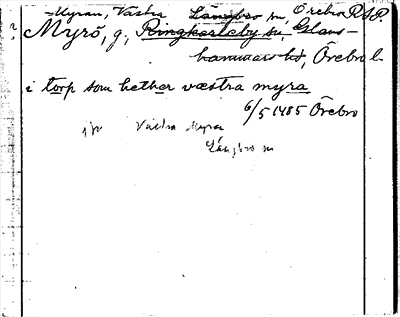 Myran, Västra Längbro sn, Örebro RSP.
Myrö, g, Ringkarleby sn, Glans-
hammars hd, Örebro l.
i torp som hether væstra myra
6/5 1485 Örebro
jfr Västra Myran
Längbro sn